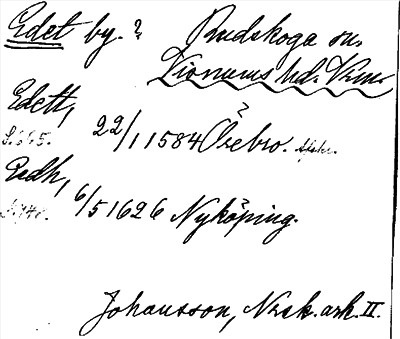 Edet by. ? Rudskoga sn.
Visnums hd. Vrml
Edett,
22/1 1584 Örebro.
Eedh,
6/5 1626 Nyköping.
Johansson, Nrsk. ark. II.